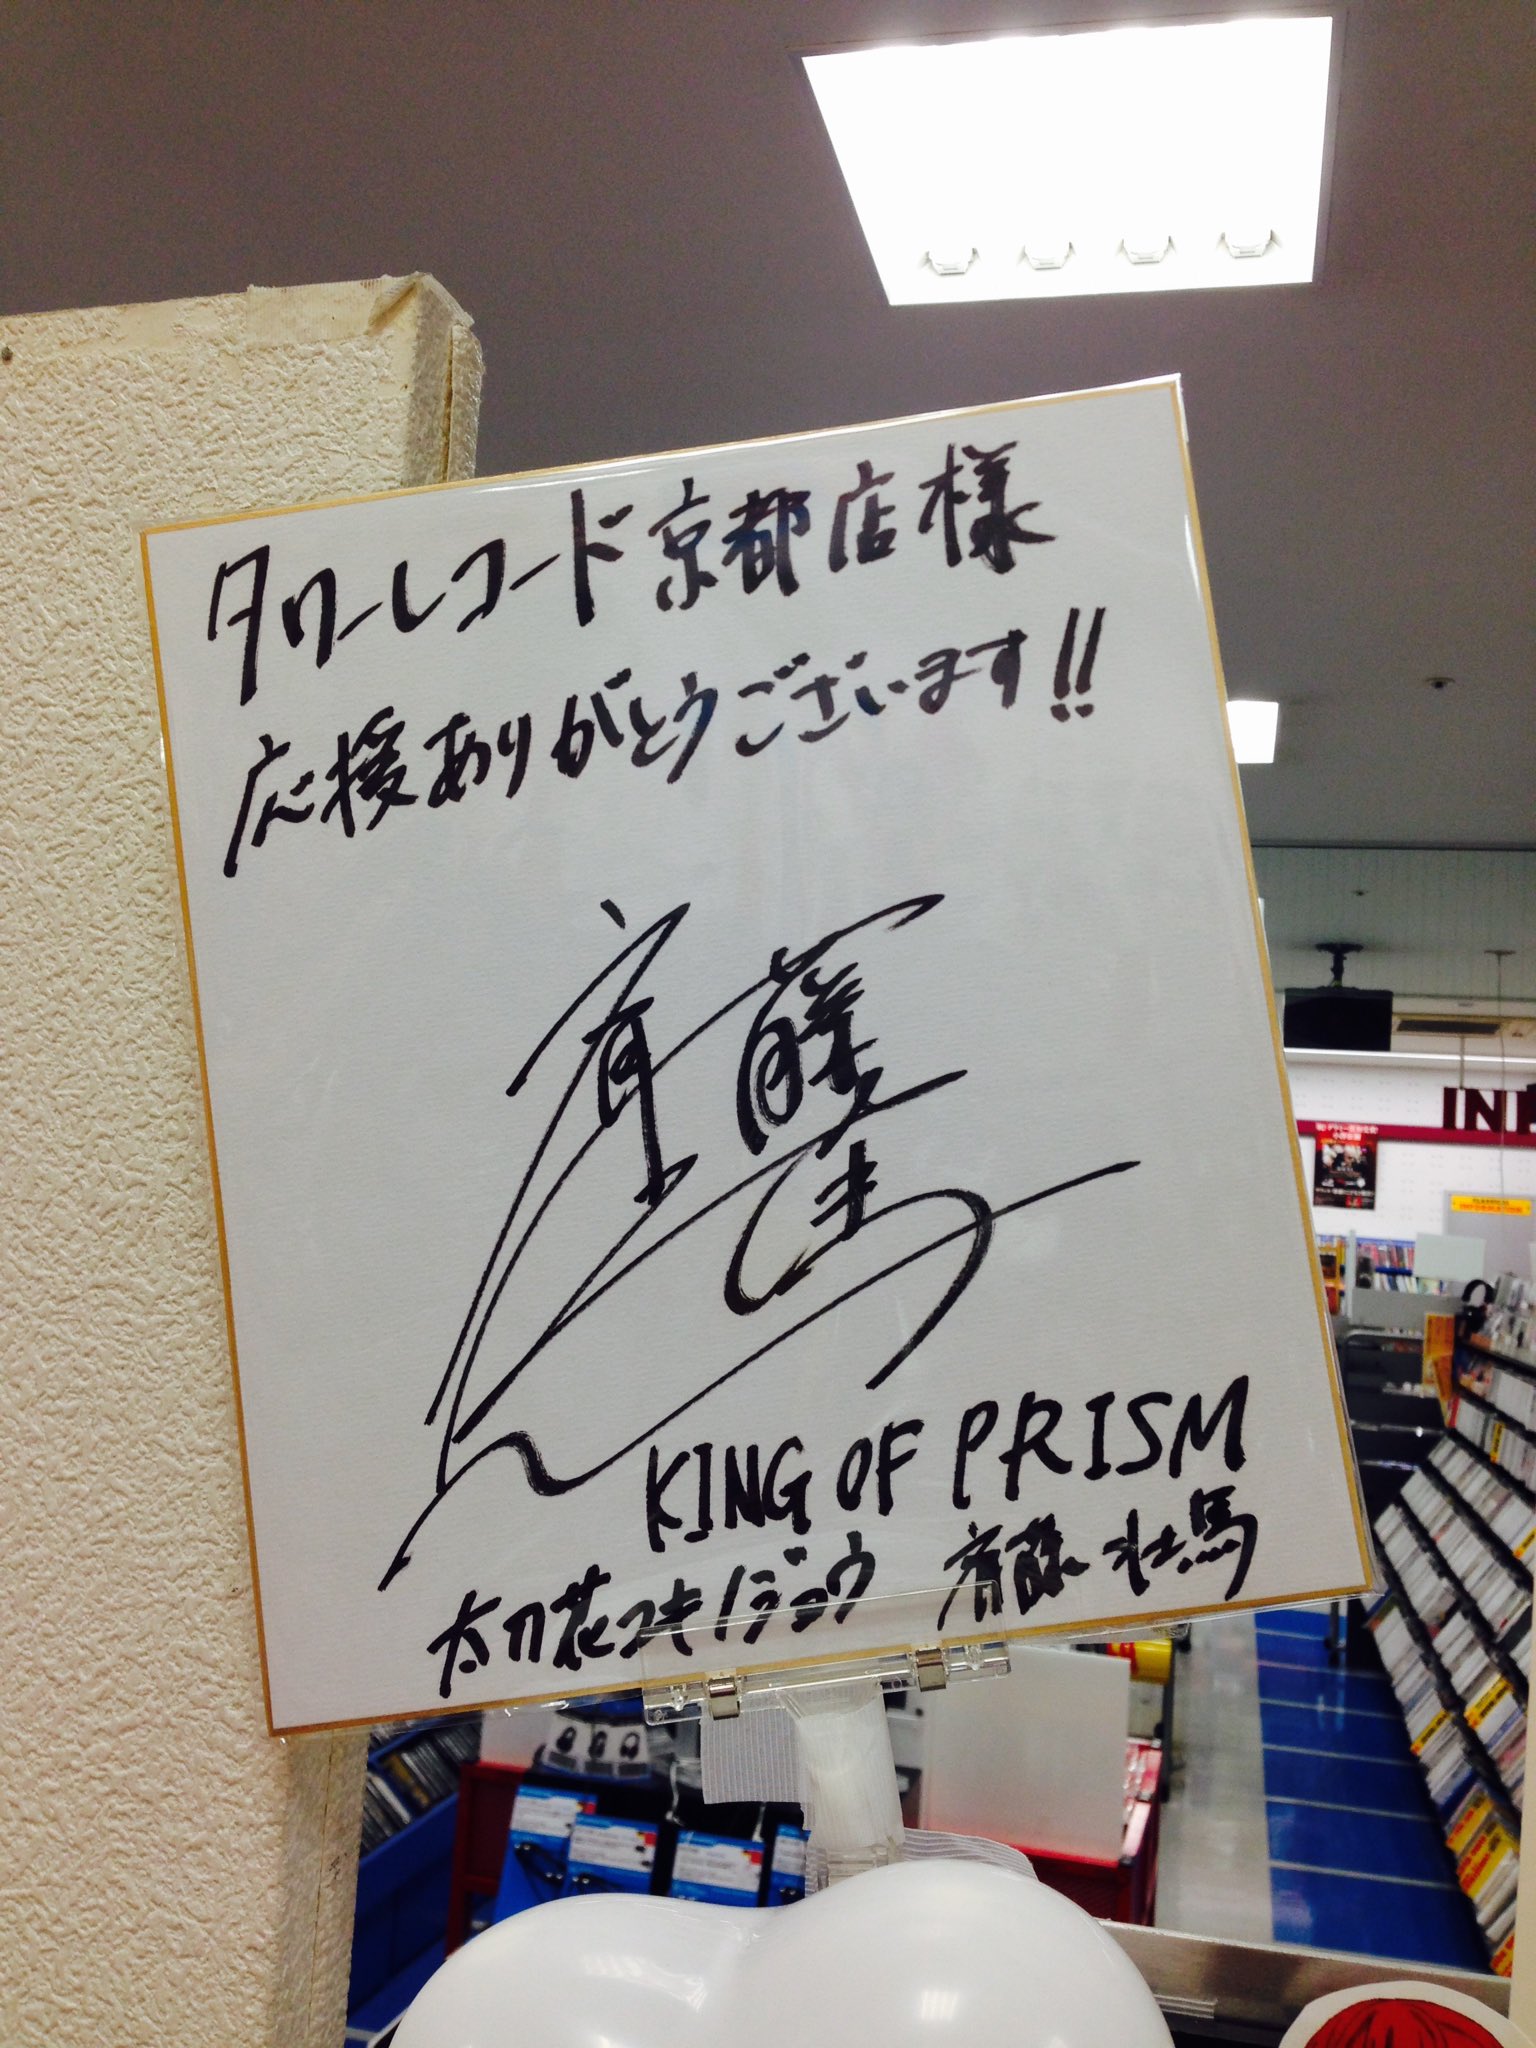 タワーレコード京都店様
応援ありがとうございます!!
斉藤壮馬
KING OF PRISM
太刀花ユキノジョウ 斉藤壮馬
IN
INFORMATION